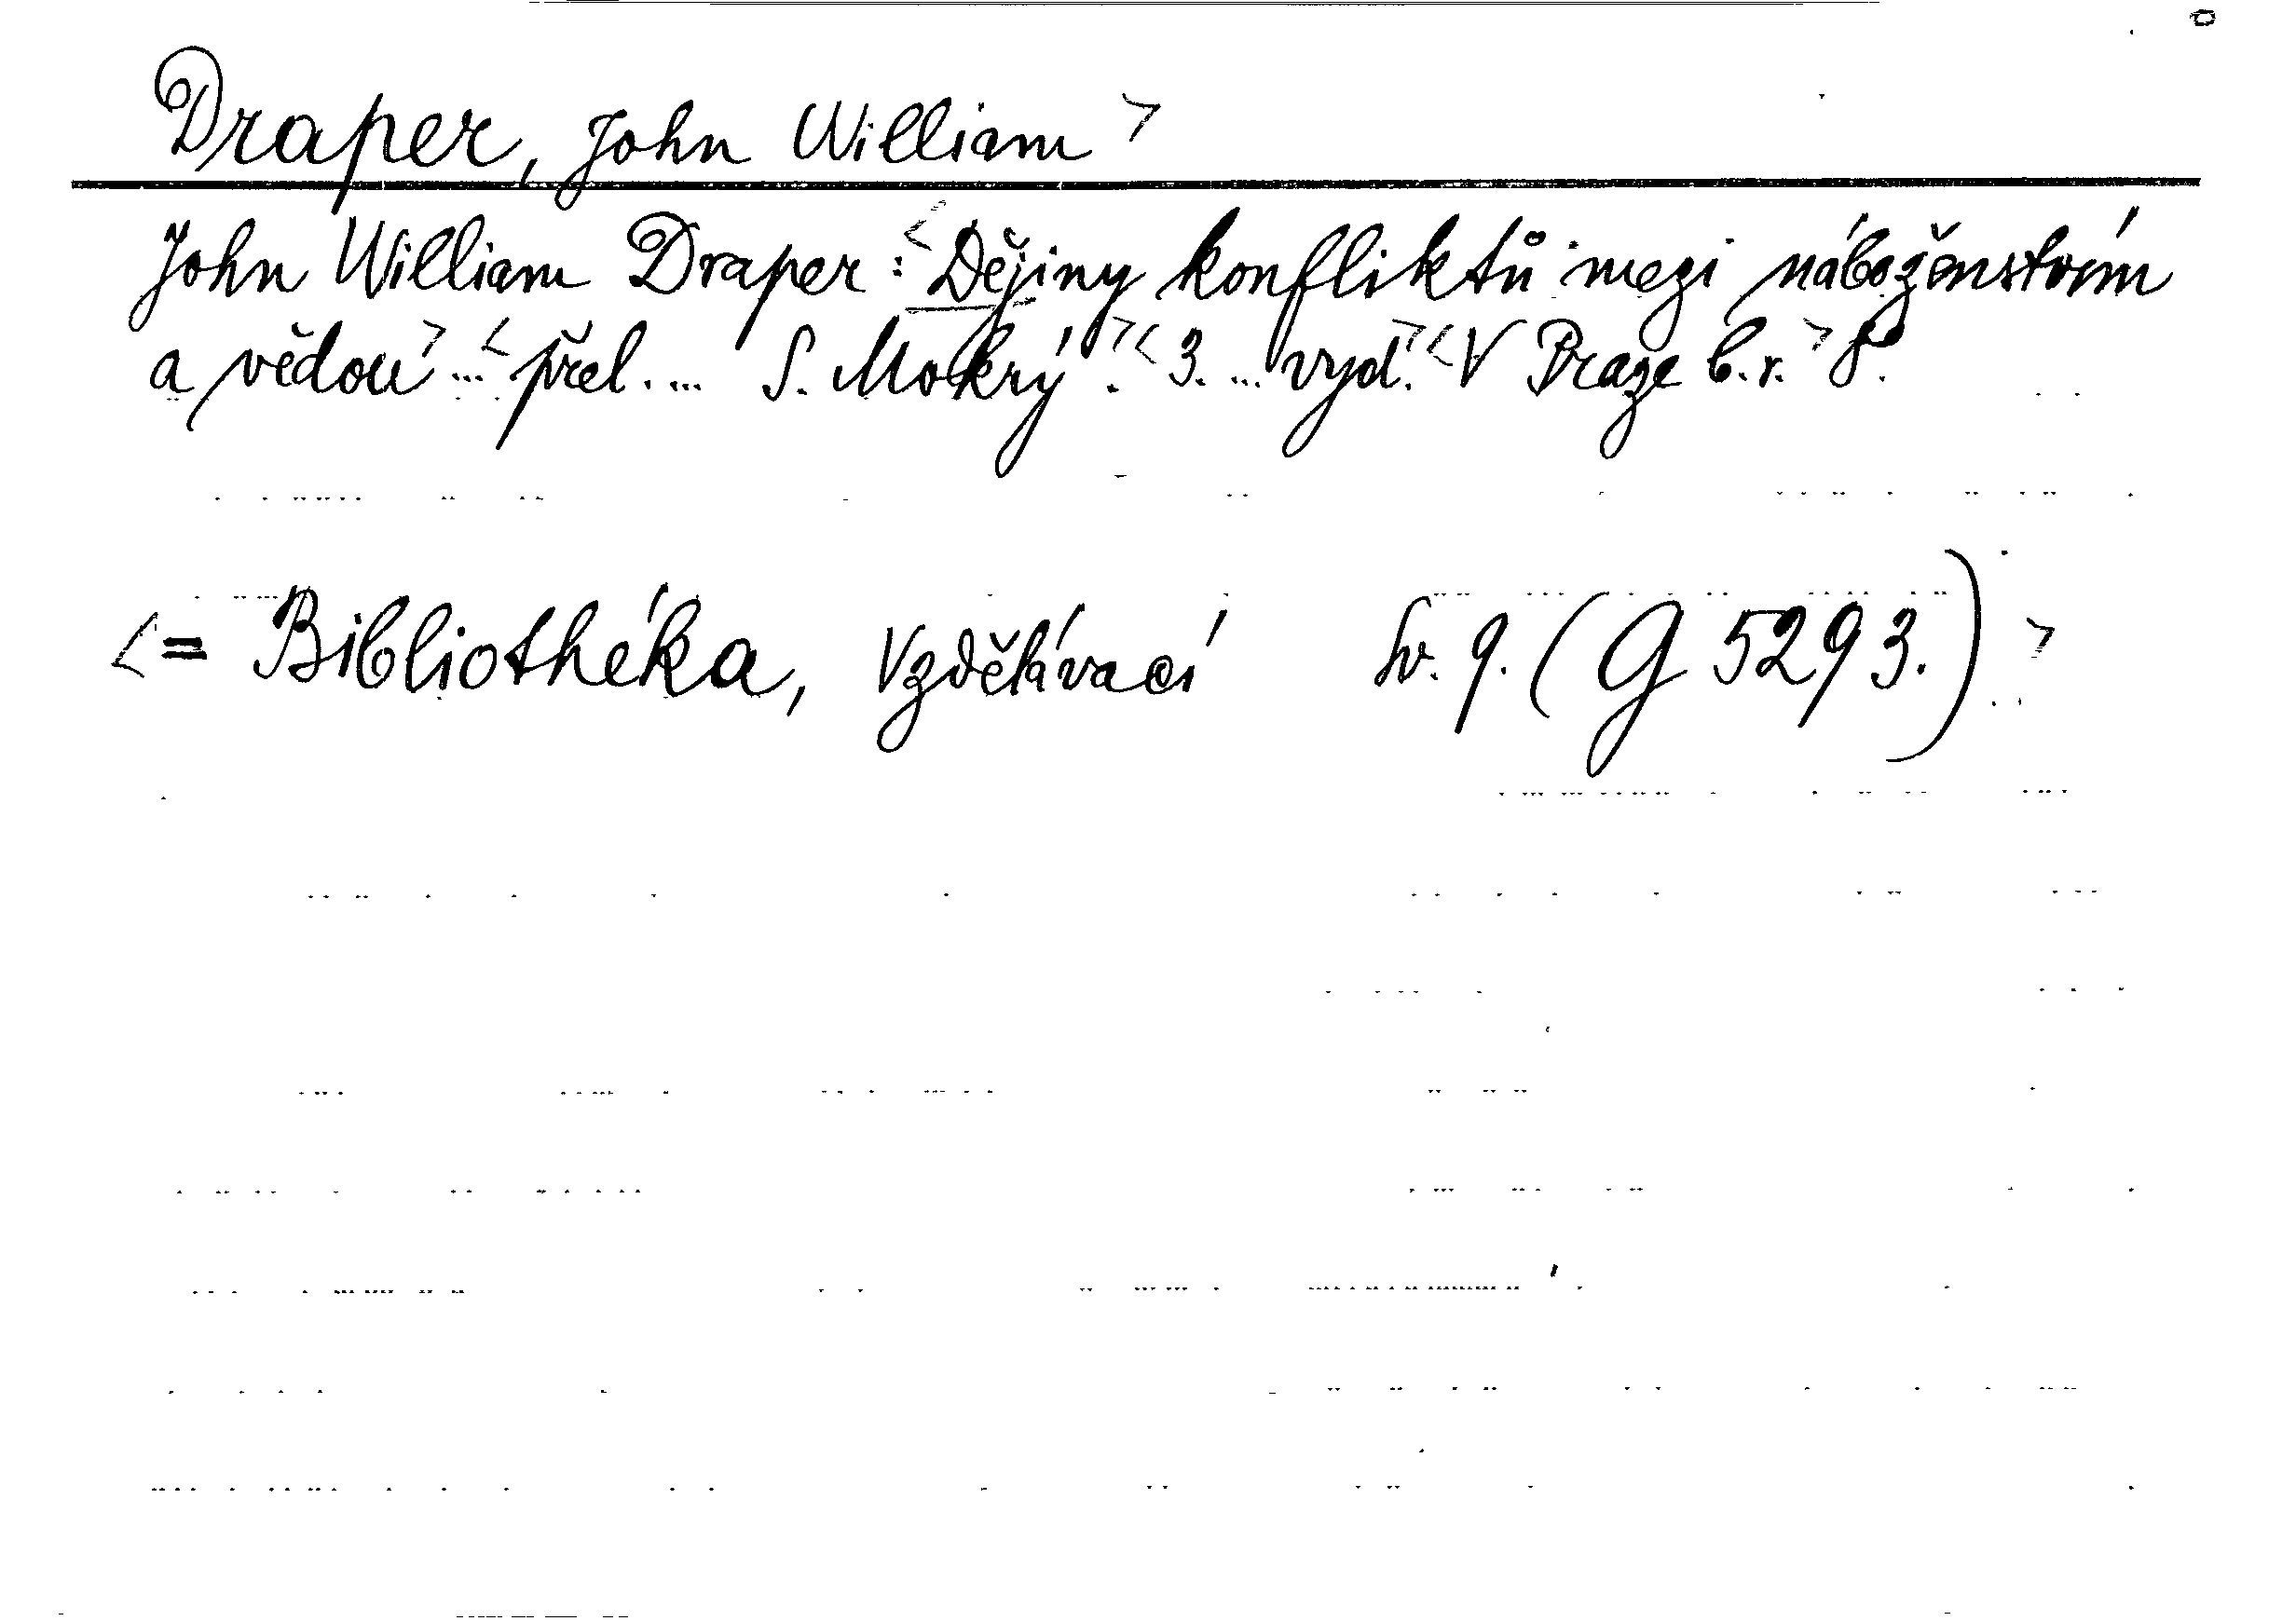 Draper, John William >
John William Draper: <Dějiny konfliktů mezi náboženstvím
a vědou> ... <přel. ... S. Mokrý.> <3. ... vyd.> <V Praze b.r.> 8°.
<= Bibliothéka, Vzdělávací Sv. 9. (G 5293.) >